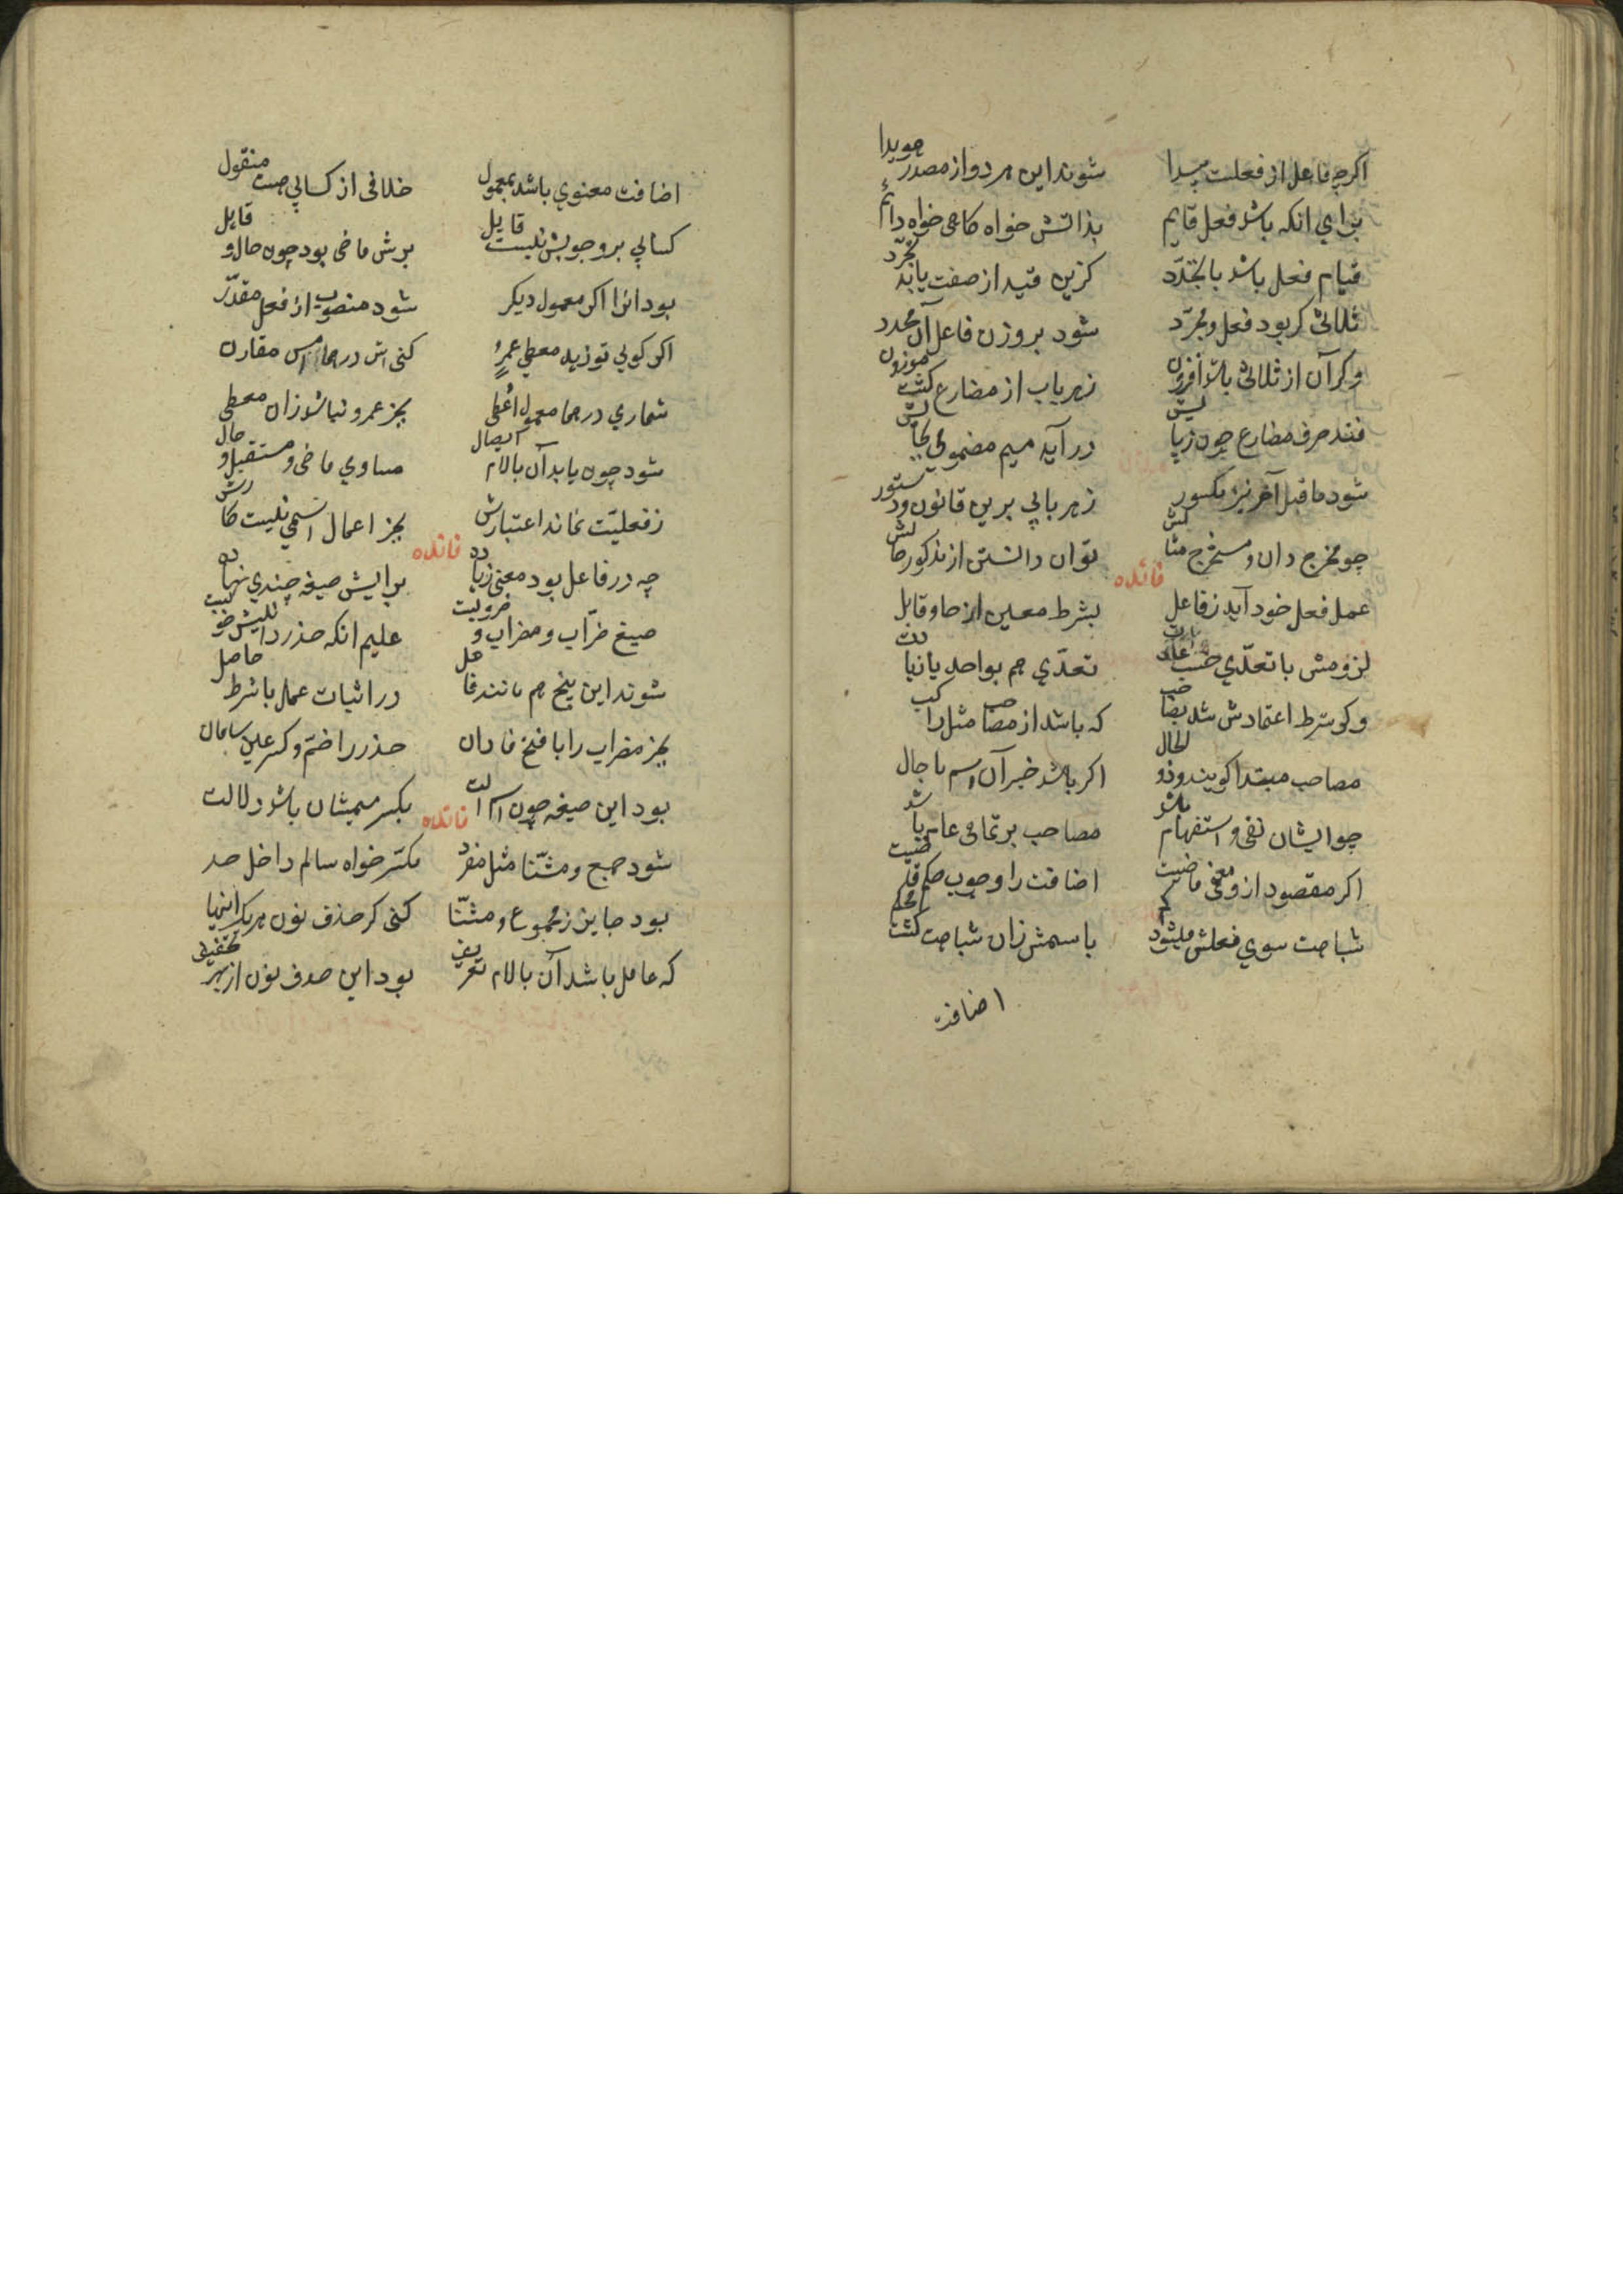 اکرچه فاعل از فعلست پیدا شوند این هر دو از مصدر هویدا
برای انکه باشد فعل قایم بذاتش خواه کاهی خواه دائم
قیام فعل باشد با تجدّد کزین قید از صفت یابد تجرّد
ثلاثی کر بود فعل و مجرّد شود بر وزن فاعل آن محدد
وکر آن از ثلاثی باشد افزون زهر باب از مضارع کشت موزون
فتد حرف مضارع چون ز در آید میم مضمومی
شود ماقبل آخر نیز مکسور زهر بابی برین قانون و دستور
چو مخرج دان و مستخرج مثالش توان دانستن از مذکور حالش
فائده
عمل فعل خود آید ز فاعل بشرط معین از حا و قابل
لزومش با تعدّی تعدّی هم بواحد یا
وکر شرط اعتمادش شد بصاحب که باشد از مصاحب مثل راکب
مصاحب مبتدا کویند و ذو الحال اکر باشد خبر آن اسم یا حال
چو ایشان نفی و استفهام باشد مصاحب بر تمامی عام باشد
اکر مقصود ازو معنی ماضیست اضافت را وجوب حکم قاضیست
شباهت سوی فعلش میشود کم باسمش زان شباهت کشت محکم
اضافت
اضافت معنوی باشد بمعمول خلافی از کسائی هست منقول
کسائی بر وجوبش نیست قایل برش ماضی بود چون حال و قابل
بود انرا اکر معمول دیکر شود منصوب از فعل مقدّر
اکر کویی تو زید معطی عمرٍو کنی اش درهما امس مقارن
شماری درهما معمول اعطی بجز عمرو نباشد زان معطی
شود چون یابد آن بالام ایصال مساوی ماضی و مستقبل و حال
ز فعلیّت نماند اعتبارش بجز اعمال اسمی نیست کارش
فائده
چه در فاعل بود معنی زیاده برایش صیغه چندی نهاده
صیغ ضرّاب و مضراب و ضروبست علیم انکه حذر
شوند این پنج هم مانند فاعل در اثبات عمل با شرط حاصل
بجز مضراب را با فتح فا دان حذر را ضمّ و کسر عین
بود این صیغه چون اسم الت بکسر میمشان باشد دلالت
فائده
شود جمع و مثنّا مثل مفرد مکسّر خواه سالم داخل حد
بود جایز ز مجموع و مثنّا کنی کر حذف نون هر یک اینها
که عامل باشد آن بالام تعریف بود این حذف نون از بهر تخفیف